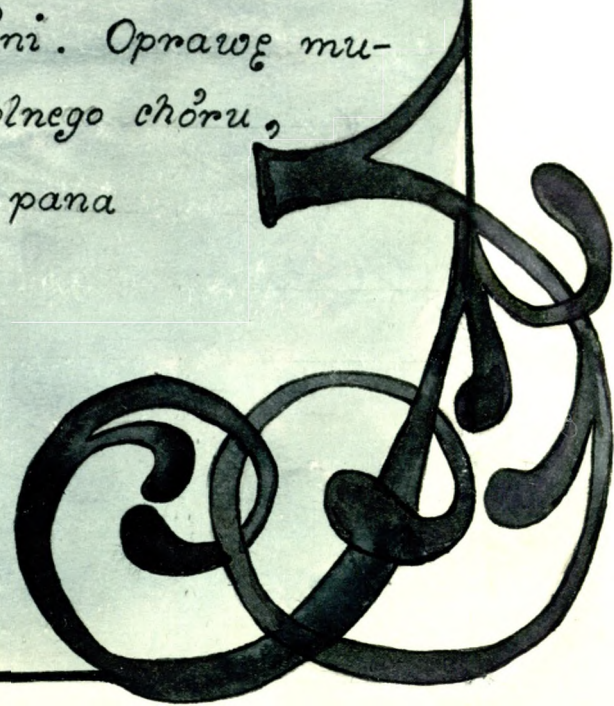 ni. Oprawę mu-
olnego chóru,
pana